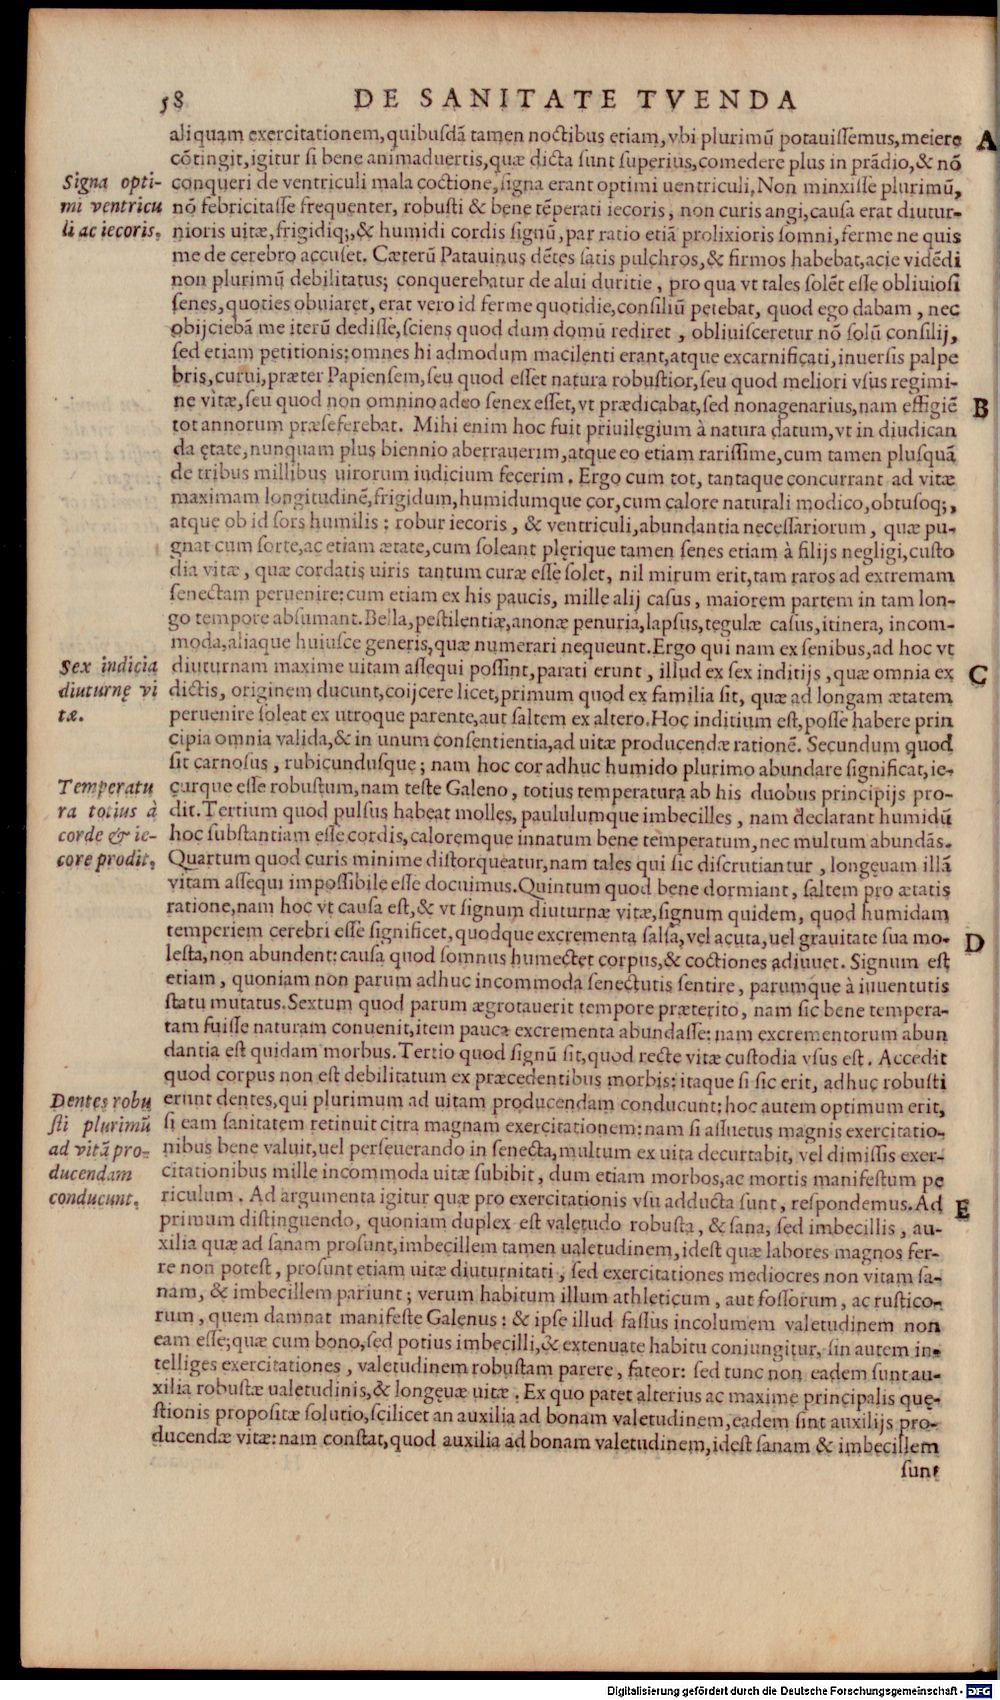 58 DE SANITATE TVENDA
aliquam exercitationem,quibusdã tamen noctibus etiam,vbi plurimũ potauissemus,meiere A
cõtingit,igitur si bene animaduertis,quæ dicta sunt superius,comedere plus in prãdio,& nõ
conqueri de ventriculi mala coctione,signa erant optimi uentriculi,Non minxisse plurimũ,
nõ febricitasse frequenter, robusti & bene tẽperati iecoris, non curis angi,causa erat diutur-
nioris uitæ,frigidiq;,& humidi cordis signũ,par ratio etiã prolixioris somni,ferme ne quis
me de cerebro accuset. Cæterũ Patauinus dẽtes satis pulchros,& firmos habebat,acie vidẽdi
non plurimũ debilitatus; conquerebatur de alui duritie, pro qua vt tales solẽt esse obliuiosi
senes,quoties obuiaret,erat vero id ferme quotidie,consiliũ petebat, quod ego dabam, nec
obijciebã me iterũ dedisse,sciens quod dum domũ rediret, obliuisceretur nõ solũ consilij,
sed etiam petitionis:omnes hi admodum macilenti erant,atque excarnificati,inuersis palpe
bris,curui,præter Papiensem,seu quod esset natura robustior,seu quod meliori vsus regimi-
ne vitæ,seu quod non omnino adeo senex esset,vt prædicabat,sed nonagenarius,nam effigiẽ B
tot annorum præseferebat. Mihi enim hoc fuit priuilegium à natura datum,vt in diudican
da ętate,nunquam plus biennio aberrauerim,atque eo etiam rarissime,cum tamen plusquã
de tribus millibus uirorum iudicium fecerim. Ergo cum tot, tantaque concurrant ad vitæ
maximam longitudinẽ,frigidum,humidumque cor,cum calore naturali modico,obtusoq;,
atque ob id sors humilis: robur iecoris, & ventriculi,abundantia necessariorum, quæ pu-
gnat cum sorte,ac etiam ætate,cum soleant plęrique tamen senes etiam à filijs negligi,custo
dia vitæ, quæ cordatis uiris tantum curæ esse solet, nil mirum erit,tam raros ad extremam
senectam peruenire:cum etiam ex his paucis, mille alij casus, maiorem partem in tam lon-
go tempore absumant.Bella,pestilentiæ,anonæ penuria,lapsus,tegulæ casus,itinera, incom-
moda,aliaque huiusce generis,quæ numerari nequeunt.Ergo qui nam ex senibus,ad hoc vt
diuturnam maxime uitam assequi possint,parati erunt, illud ex sex inditijs, quæ omnia ex C
dictis, originem ducunt,coijcere licet,primum quod ex familia sit, quæ ad longam ætatem
peruenire soleat ex utroque parente,aut saltem ex altero.Hoc inditium est,posse habere prin
cipia omnia valida,& in unum consentientia,ad uitæ producendæ rationẽ. Secundum quod
sit carnosus, rubicundusque; nam hoc cor adhuc humido plurimo abundare significat,ie-
curque esse robustum,nam teste Galeno, totius temperatura ab his duobus principijs pro-
dit.Tertium quod pulsus habeat molles, paululumque imbecilles, nam declarant humidũ
hoc substantiam esse cordis,caloremque innatum bene temperatum,nec multum abundãs.
Quartum quod curis minime distorqueatur,nam tales qui sic discrutiantur, longęuam illã
vitam assequi impossibile esse docuimus.Quintum quod bene dormiant, saltem pro ætatis
ratione,nam hoc vt causa est,& vt signum diuturnæ vitæ,signum quidem, quod humidam
temperiem cerebri esse significet,quodque excrementa salsa,vel acuta,uel grauitate sua mo- D
lesta,non abundent:causa quod somnus humectet corpus,& coctiones adiuuet. Signum est
etiam, quoniam non parum adhuc incommoda senectutis sentire, parumque à iuuentutis
statu mutatus.Sextum quod parum ægrotauerit tempore præterito, nam sic bene tempera-
tam fuisse naturam conuenit,item pauca excrementa abundasse:nam excrementorum abun
dantia est quidam morbus.Tertio quod signũ sit,quod recte vitæ custodia vsus est. Accedit
quod corpus non est debilitatum ex præcedentibus morbis:itaque si sic erit, adhuc robusti
erunt dentes,qui plurimum ad uitam producendam conducunt:hoc autem optimum erit,
si eam sanitatem retinuit citra magnam exercitationem:nam si assuetus magnis exercitatio-
nibus bene valuit,uel perseuerando in senecta,multum ex uita decurtabit, vel dimissis exer-
citationibus mille incommoda uitæ subibit, dum etiam morbos,ac mortis manifestum pe
riculum. Ad argumenta igitur quæ pro exercitationis vsu adducta sunt, respondemus.Ad E
primum distinguendo, quoniam duplex est valetudo robusta, & sana, sed imbecillis, au-
xilia quæ ad sanam prosunt,imbecillem tamen ualetudinem,idest quæ labores magnos fer-
re non potest, prosunt etiam uitæ diuturnitati, sed exercitationes mediocres non vitam sa-
nam, & imbecillem pariunt; verum habitum illum athleticum, aut fossorum, ac rustico-
rum, quem damnat manifeste Galenus: & ipse illud fassus incolumem valetudinem non
eam esse;quæ cum bono,sed potius imbecilli,& extenuate habitu coniungitur, sin autem in-
telliges exercitationes, valetudinem robustam parere, fateor: sed tunc non eadem sunt au-
xilia robustæ ualetudinis,& longęuæ uitæ. Ex quo patet alterius ac maxime principalis quę-
stionis propositæ solutio,scilicet an auxilia ad bonam valetudinem,eadem sint auxilijs pro-
ducendæ vitæ:nam constat,quod auxilia ad bonam valetudinem,idest sanam & imbecillem
sunt
Signa opti-
mi ventricu
li ac iecoris.
Sex indicia
diuturnę vi
tæ.
Temperatu
ra totius à
corde & ie-
core prodit.
Dentes robu
sti plurimũ
ad vitã pro-
ducendam
conducunt.
Digitalisierung gefördert durch die Deutsche Forschungsgemeinschaft - DFG